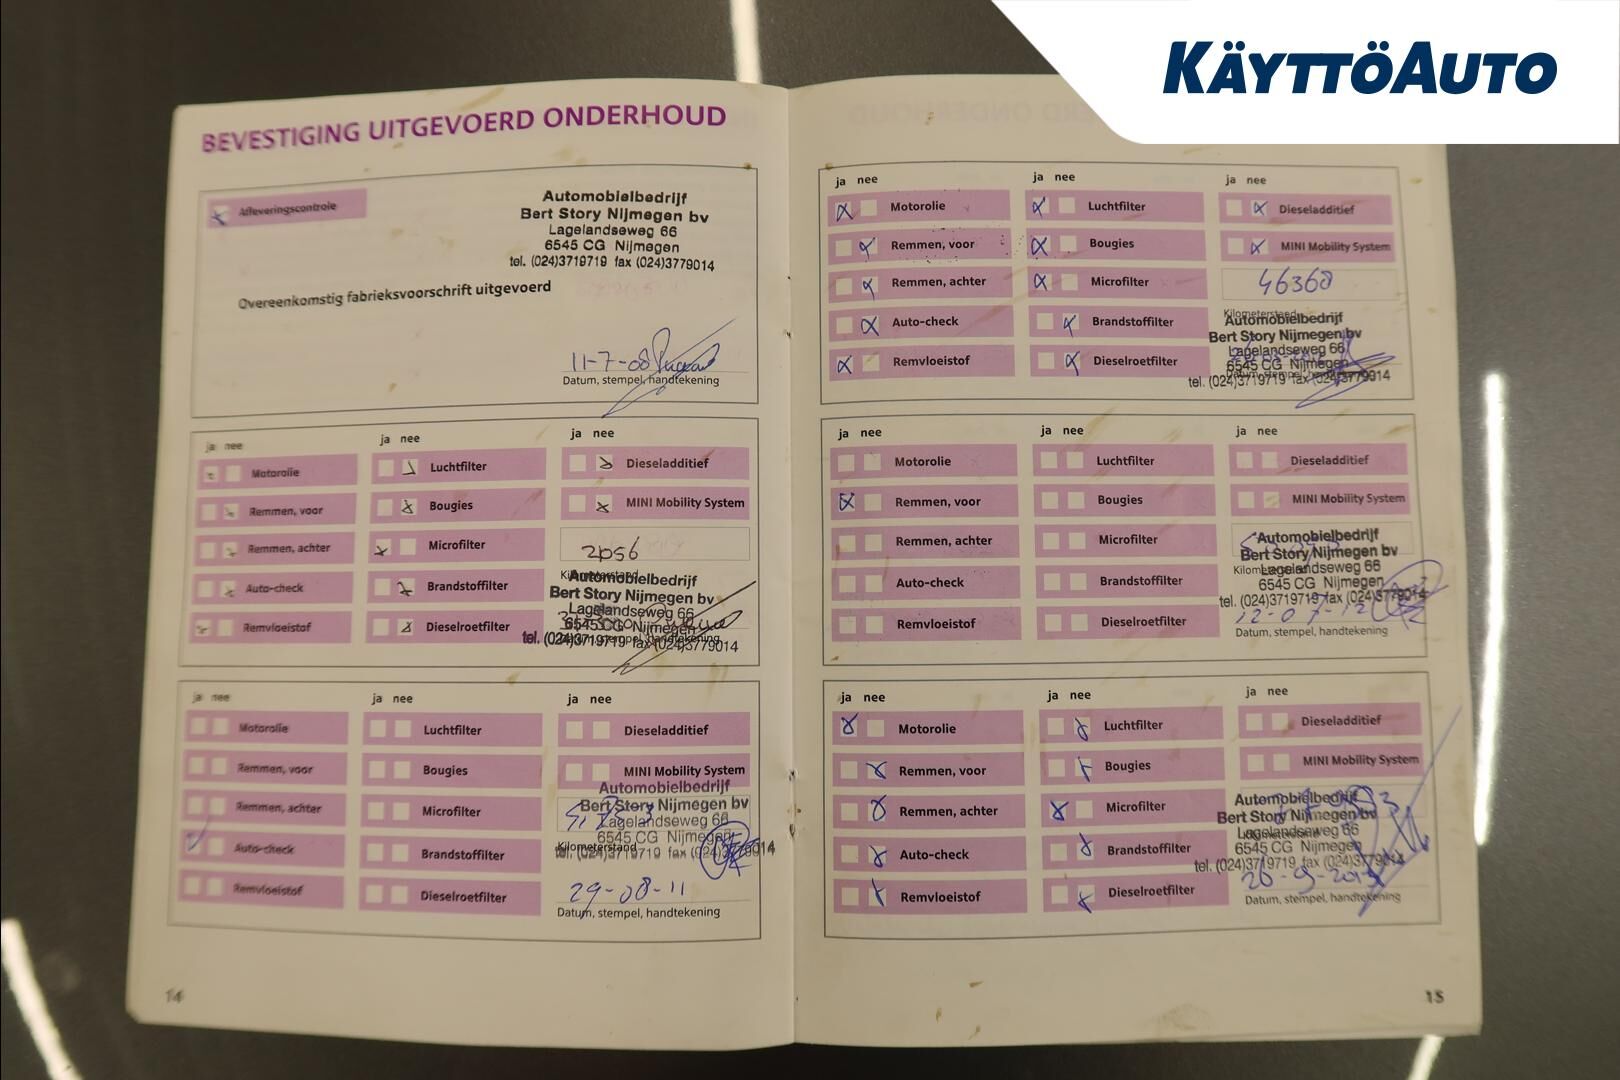 KÄYTTÖAUTO
BEVESTIGING UITGEVOERD ONDERHOUD
Afleveringscontrole
Automobielbedrijf
Bert Story Nijmegen bv
Lagelandseweg 66
6545 CG Nijmegen
tel. (024)3719719 fax (024)3779014
Overeenkomstig fabrieksvoorschrift uitgevoerd
11-7-08
Datum, stempel, handtekening
ja nee
ja nee
ja nee
Motorolie
Luchtfilter
Dieseladditief
Remmen, voor
Bougies
MINI Mobility System
Remmen, achter
Microfilter
Auto-check
Brandstoffilter
Remvloeistof
Dieselroetfilter
Kilometerstand
Automobielbedrijf
Bert Story Nijmegen bv
Lagelandseweg 66
6545 CG Nijmegen
tel. (024)3719719 fax (024)3779014
Datum, stempel, handtekening
ja nee
ja nee
ja nee
Motorolie
Luchtfilter
Dieseladditief
Remmen, voor
Bougies
MINI Mobility System
Remmen, achter
Microfilter
Auto-check
Brandstoffilter
Remvloeistof
Dieselroetfilter
Automobielbedrijf
Bert Story Nijmegen bv
Lagelandseweg 66
6545 CG Nijmegen
Kilometerstand
tel. (024)3719719 fax (024)3779014
29-08-11
Datum, stempel, handtekening
14
ja nee
ja nee
ja nee
Motorolie
Luchtfilter
Dieseladditief
Remmen, voor
Bougies
MINI Mobility System
Remmen, achter
Microfilter
46368
Auto-check
Brandstoffilter
Remvloeistof
Dieselroetfilter
Kilometerstand
Automobielbedrijf
Bert Story Nijmegen bv
Lagelandseweg 66
6545 CG Nijmegen
Datum, stempel, handtekening
tel. (024)3719719 fax (024)3779014
ja nee
ja nee
ja nee
Motorolie
Luchtfilter
Dieseladditief
Remmen, voor
Bougies
MINI Mobility System
Remmen, achter
Microfilter
Auto-check
Brandstoffilter
Remvloeistof
Dieselroetfilter
Automobielbedrijf
Bert Story Nijmegen bv
Lagelandseweg 66
6545 CG Nijmegen
tel. (024)3719719 fax (024)3779014
12-07-12
Datum, stempel, handtekening
ja nee
ja nee
ja nee
Motorolie
Luchtfilter
Dieseladditief
Remmen, voor
Bougies
MINI Mobility System
Remmen, achter
Microfilter
Auto-check
Brandstoffilter
Remvloeistof
Dieselroetfilter
Automobielbedrijf
Bert Story Nijmegen bv
Lagelandseweg 66
6545 CG Nijmegen
tel. (024)3719719 fax (024)3779014
Datum, stempel, handtekening
15